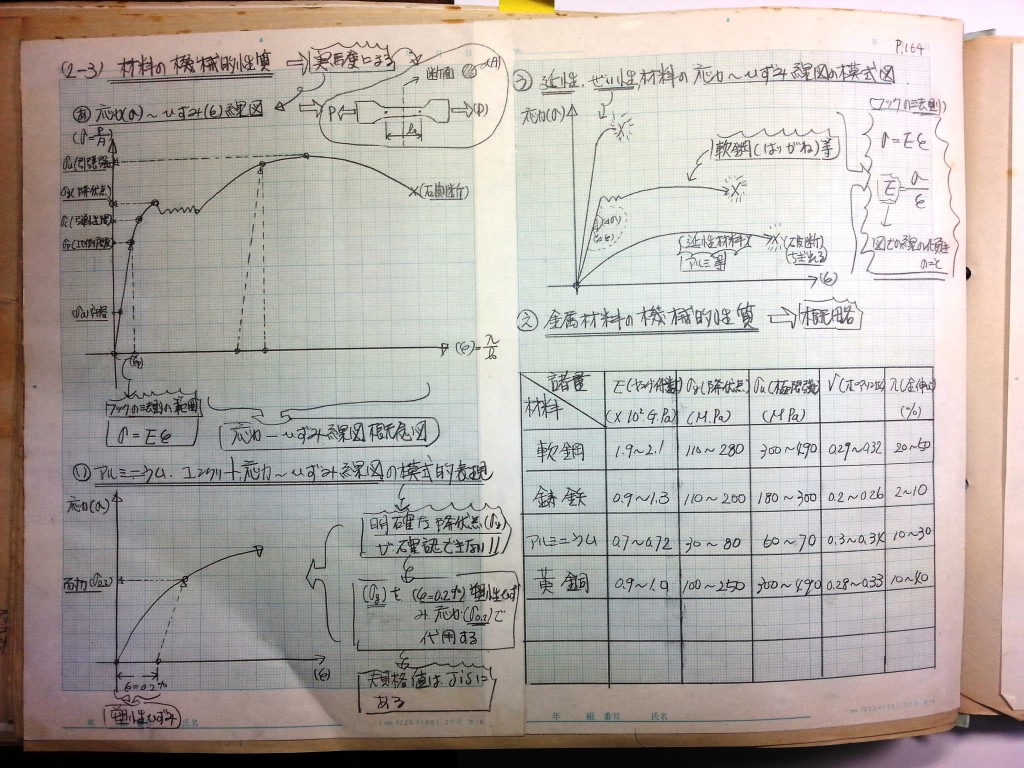 P.164
(2-3) 材料の機械的性質 ⇒ 実験による
断面 (A)
あ 応力(σ)～ひずみ(ε)線図
P
(P)
l₀
(σ=P/A)
σy(降伏点)
(破断)
(ε)=λ/l₀
フックの法則の範囲
σ=Eε
応力―ひずみ線図概念図
い) アルミニウム、コンクリート応力～ひずみ線図の模式的表現
応力(σ)
耐力(σ0.2)
(ε)
ε=0.2%
塑性ひずみ
明確な降伏点(σy)
が確認できない!!
(σy)を (ε=0.2%) 塑性ひず
み 応力(σ0.2)で
代用する
規格値はJISに
ある
う 延性、ぜい性材料の応力～ひずみ線図の模式図
応力(σ)
軟鋼(はりがね)等
延性材料
アルミ等
(破断)
(ε)
(フックの法則)
σ=Eε
E=σ/ε
図での線の傾き
のこと
え 金属材料の機械的性質 ⇒ 概略
諸量 材料 E(ヤング係数) (×10² GPa) σy(降伏点) (MPa) σu(極限強さ) (MPa) ν(ポアソン比) λ(全伸び) (%)
軟鋼 1.9~2.1 110~280 300~490 0.29~0.32 20~50
鋳鉄 0.9~1.3 110~200 180~300 0.2~0.26 2~10
アルミニウム 0.7~0.72 30~80 60~70 0.3~0.34 10~30
黄銅 0.9~1.0 100~250 300~490 0.28~0.33 10~40
年 氏名
年 組 番号 氏名